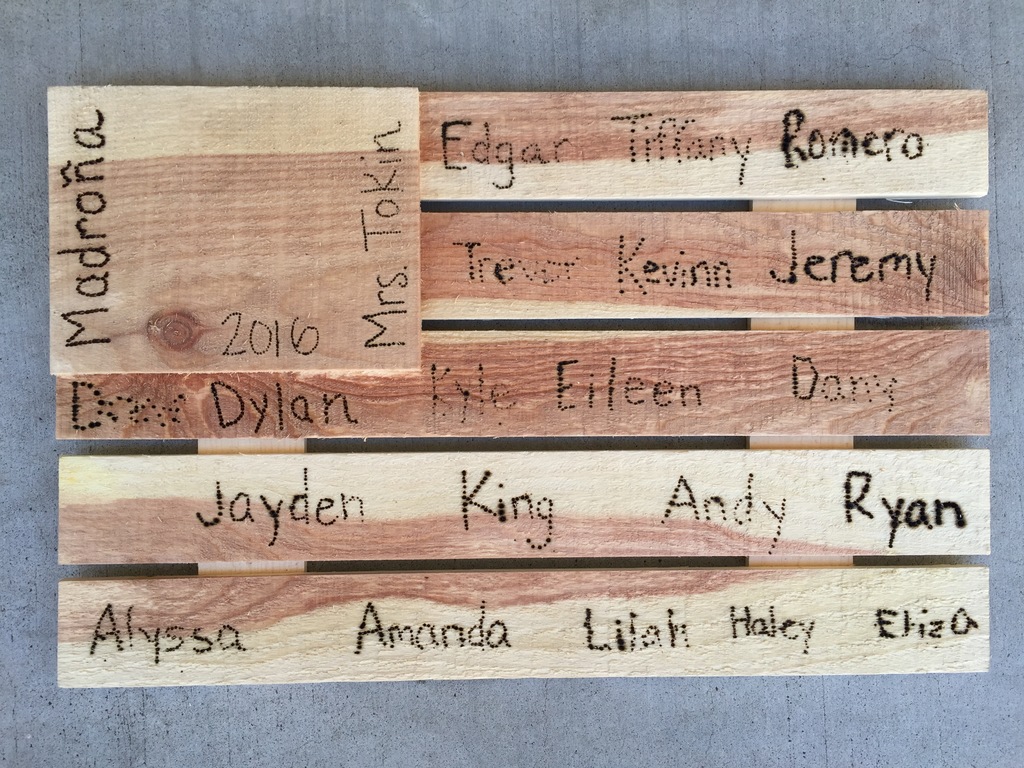 Madroña
Mrs. Tokin
2016
Edgar Tiffany Romero
Trevor Kevinn Jeremy
Drew Dylan Kyle Eileen Dany
Jayden King Andy Ryan
Alyssa Amanda Lilah Haley Eliza